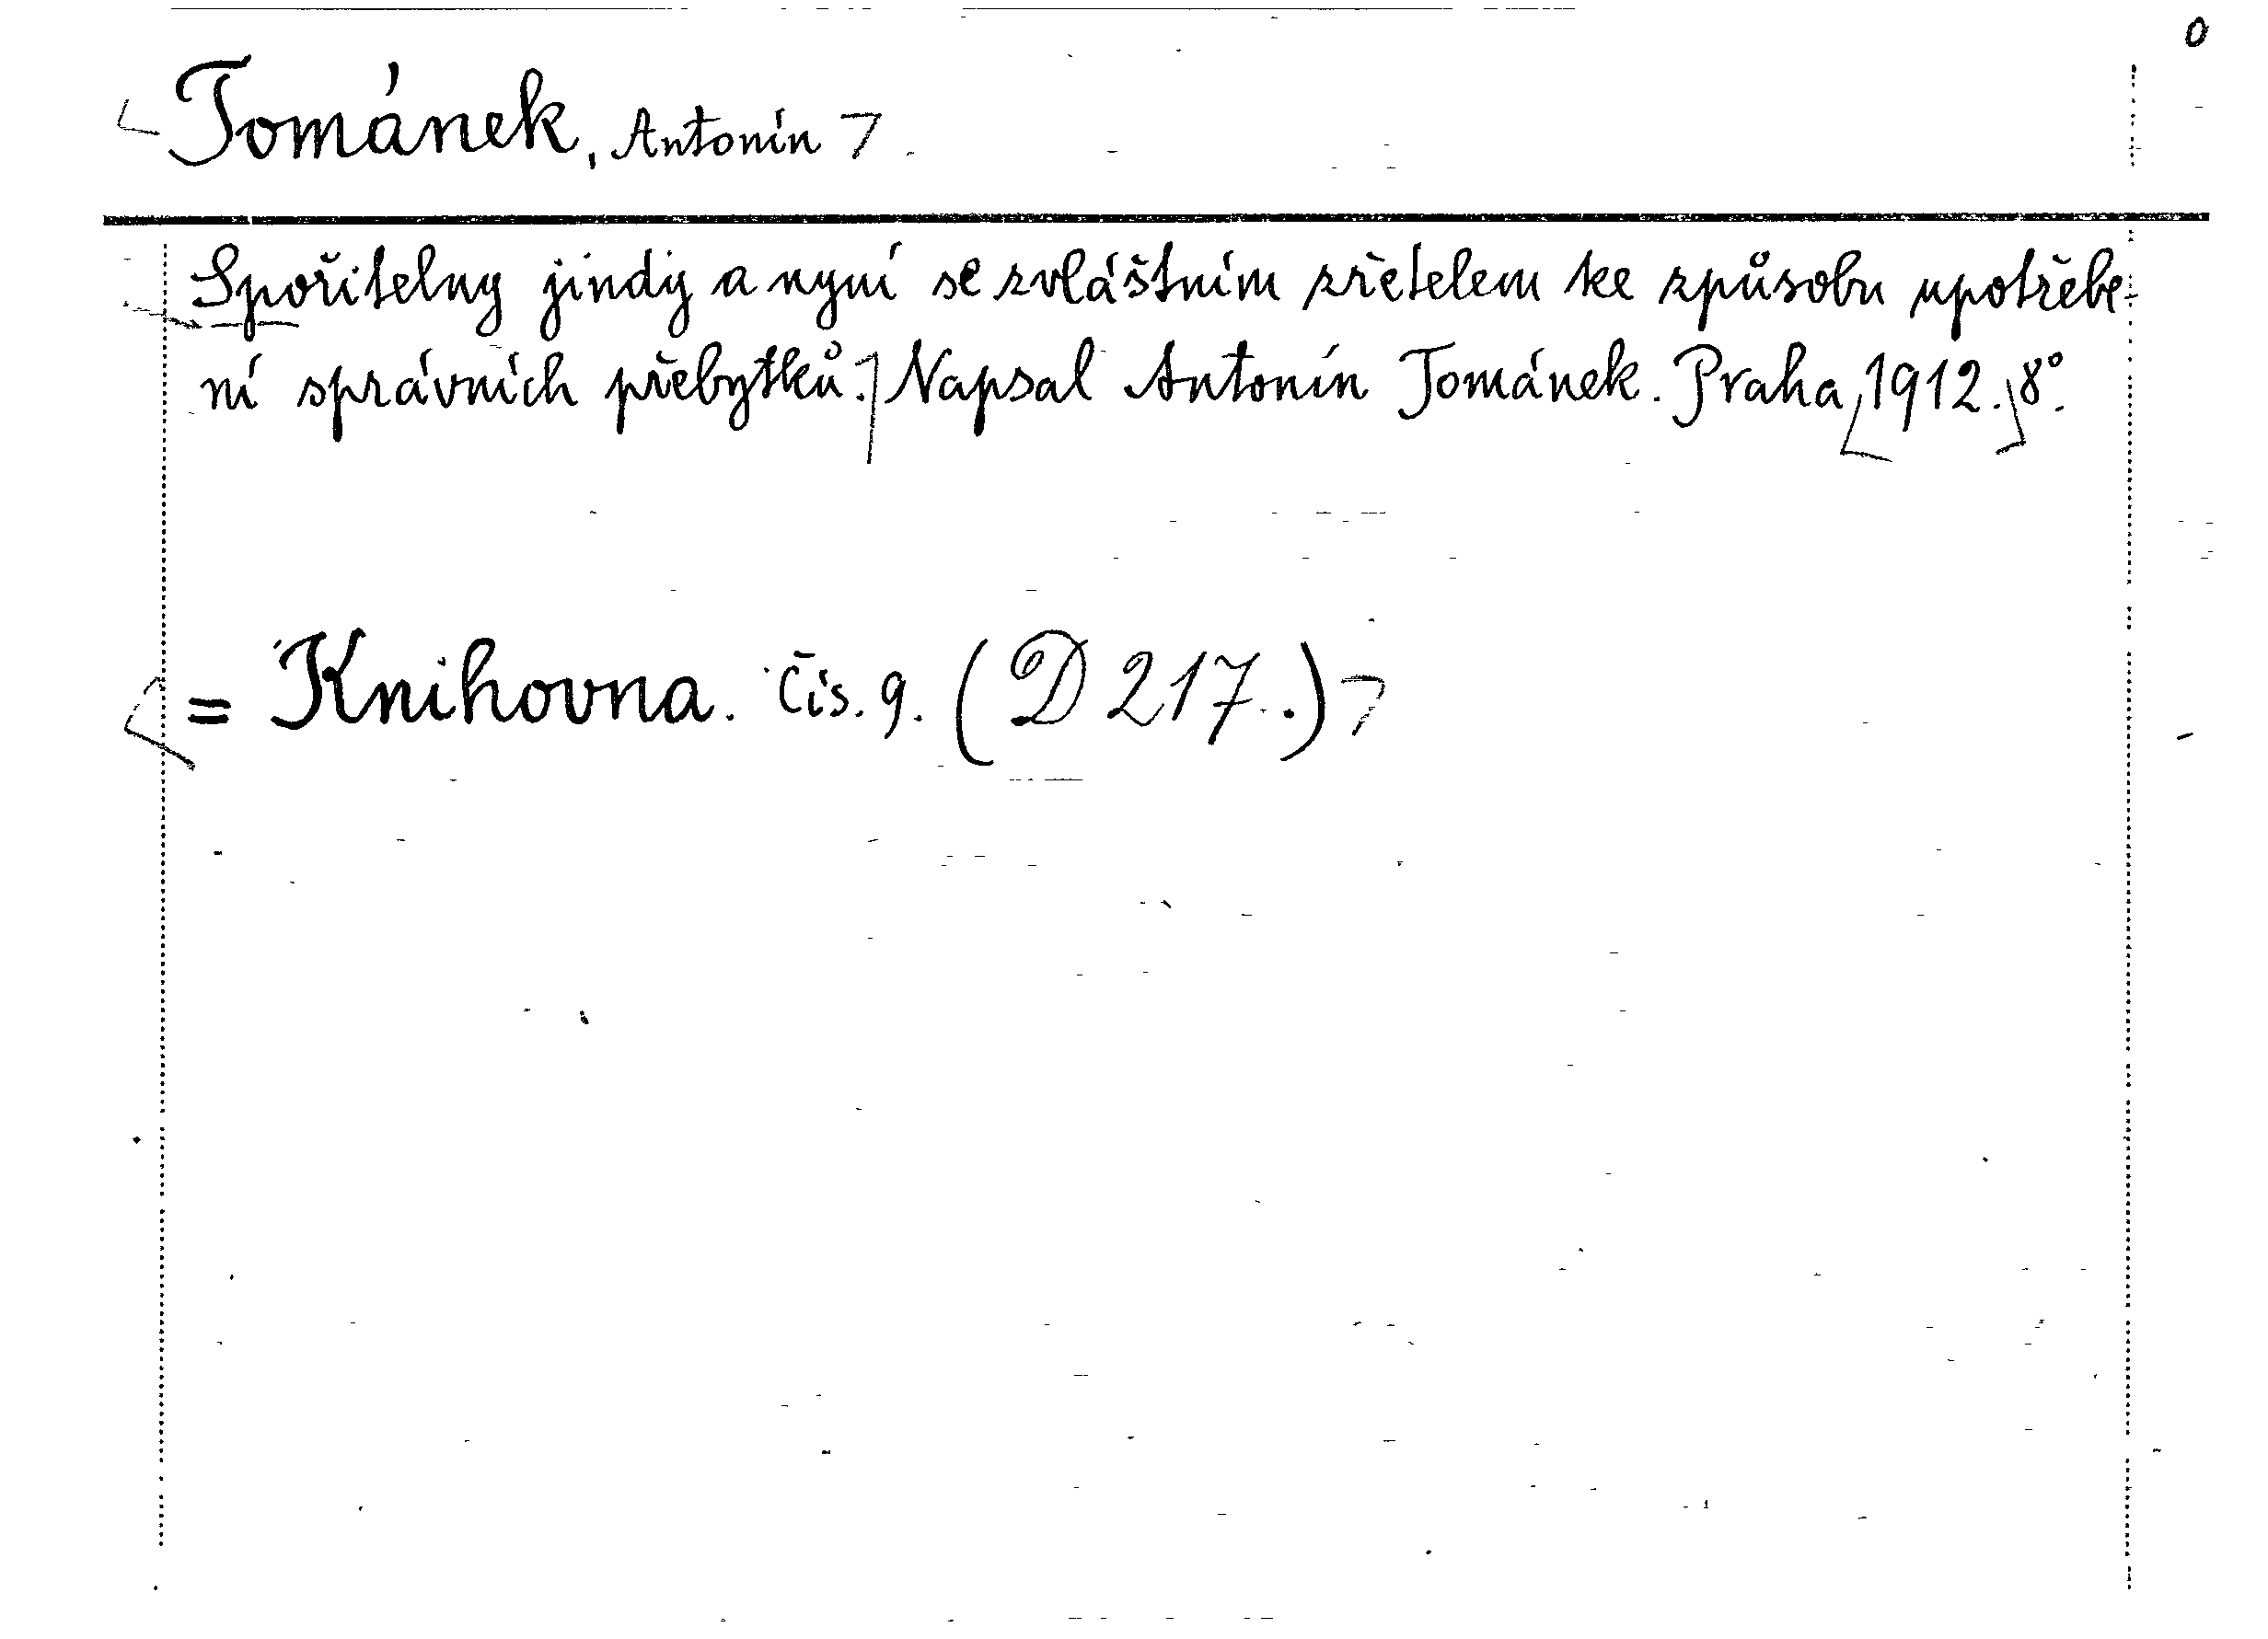 o
Tománek, Antonín
Spořitelny jindy a nyní se zvláštním zřetelem ke způsobu upotřebe-
ní správních přebytků. Napsal Antonín Tománek. Praha, 1912. 8°.
= Knihovna. Čís. 9. (D 217.)